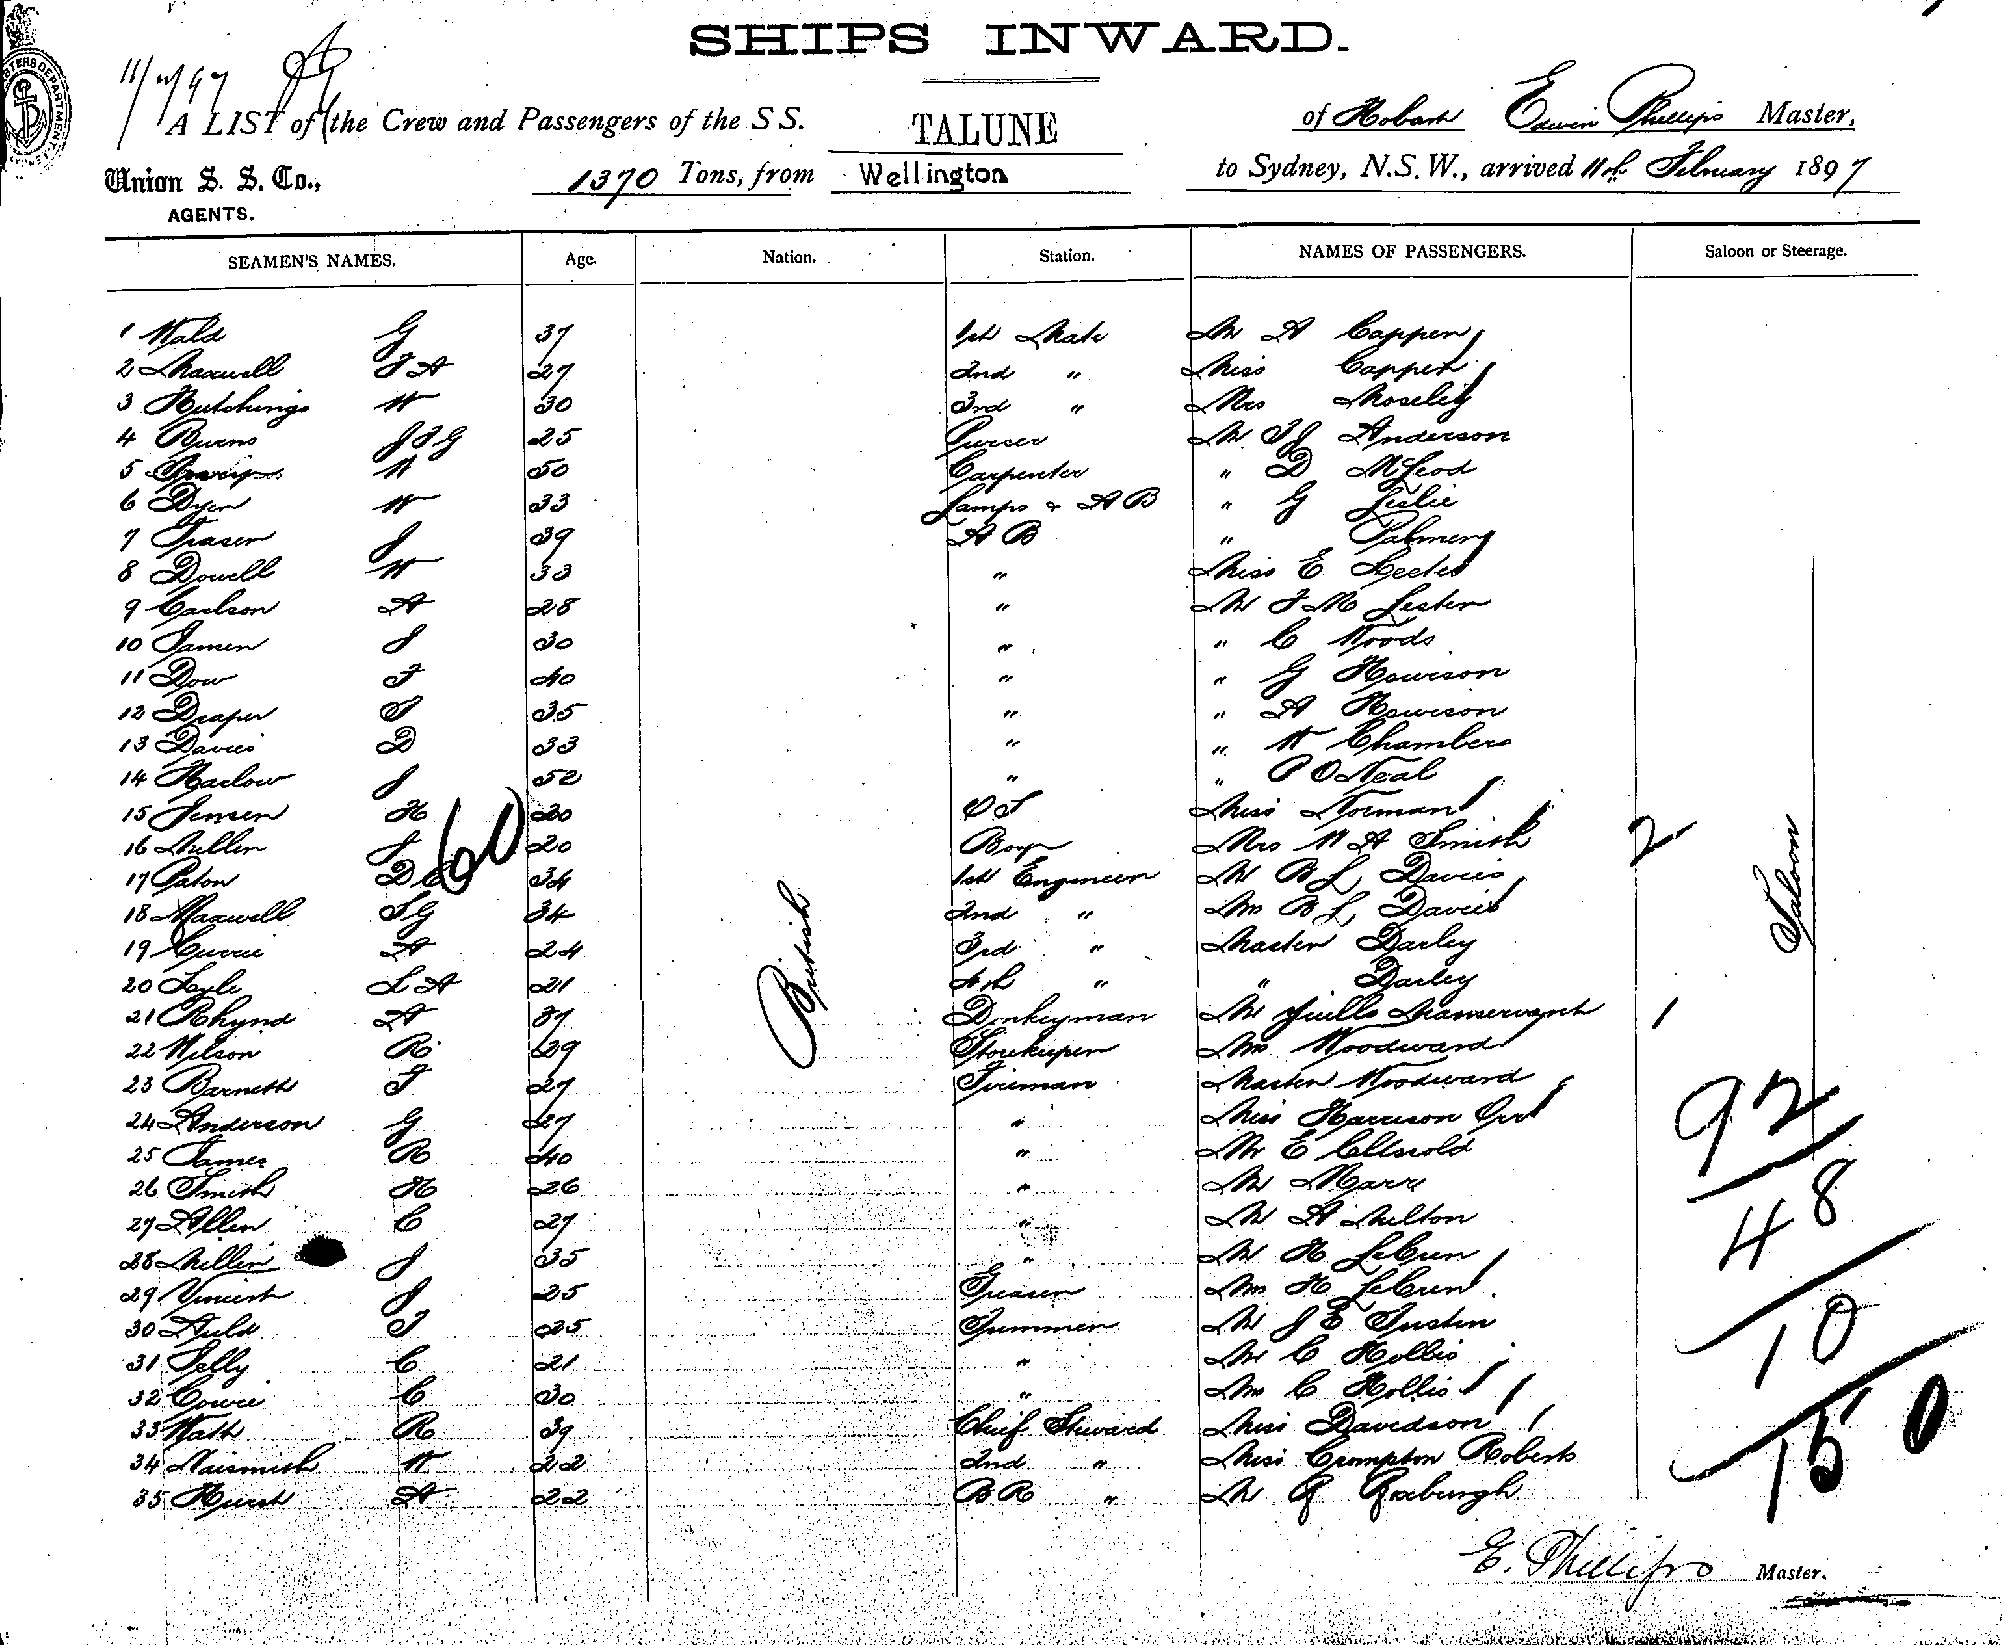 SHIPS INWARD.
11/2/97
A LIST of the Crew and Passengers of the S S. TALUNE of Hobart Edwin Phillips Master,
Union S. S. Co., 1370 Tons, from Wellington to Sydney, N.S.W., arrived 11th February 1897
AGENTS.
SEAMEN'S NAMES. Age. Nation. Station. NAMES OF PASSENGERS. Saloon or Steerage.
1 Wald G 37 1st Mate Mr A Cappen
2 Maxwell J A 27 2nd " Miss Cappen
3 Hutchings W 30 3rd " Mrs Moseley
4 Burns J F G 25 Purser Mr T J Anderson
5 W 50 Carpenter " D McLeod
6 Dyer W 33 Lamps & A B " G Leslie
7 Fraser J 39 A B " Palmer
8 Dowell W 33 " Miss E Lecter
9 Carlson A 28 " Mr F M Lester
10 Jamen J 30 " " C Woods
11 Dow F 40 " " G Hewison
12 Draper S 35 " " A Hewison
13 Davies D 33 " " W Chambers
14 Harlow J 52 " " P O Neal
15 Jensen H 20 O S Miss Norman
16 Mullin J 20 Boy Mrs W A Smith 2
17 Paton D C 60 34 1st Engineer Mr B L Davies
18 Maxwell S G 34 2nd " Mrs B L Davies
19 Currie A 24 3rd " Master Darley
20 Lyle L A 21 4th " " Darley
21 Rhynd A 37 Donkeyman Mr Yuills Manservant 1
22 Wilson R 29 Storekeeper Mrs Woodward
23 Barnett F 27 Fireman Master Woodward
24 Anderson G 27 " Miss Harrison Orr
25 James R 40 " Mr E Cotswold
26 Smith H 26 " Mr Marr
27 Allen C 27 " Mr A Milton
28 Millin J 35 " Mr H LeCren
29 Vincent J 25 Greaser Mrs H LeCren
30 Auld J 25 Trimmer Mr J E Tustin
31 Selly C 21 " Mr C Hollis
32 Cowie C 30 " Mrs C Hollis
33 Watt R 39 Chief Steward Miss Davidson
34 Naismith W 22 2nd " Miss Crompton Roberts
35 Hurst A 22 B R " Mr R Roxburgh
British
Saloon
92
48
10
150
E. Phillips Master.